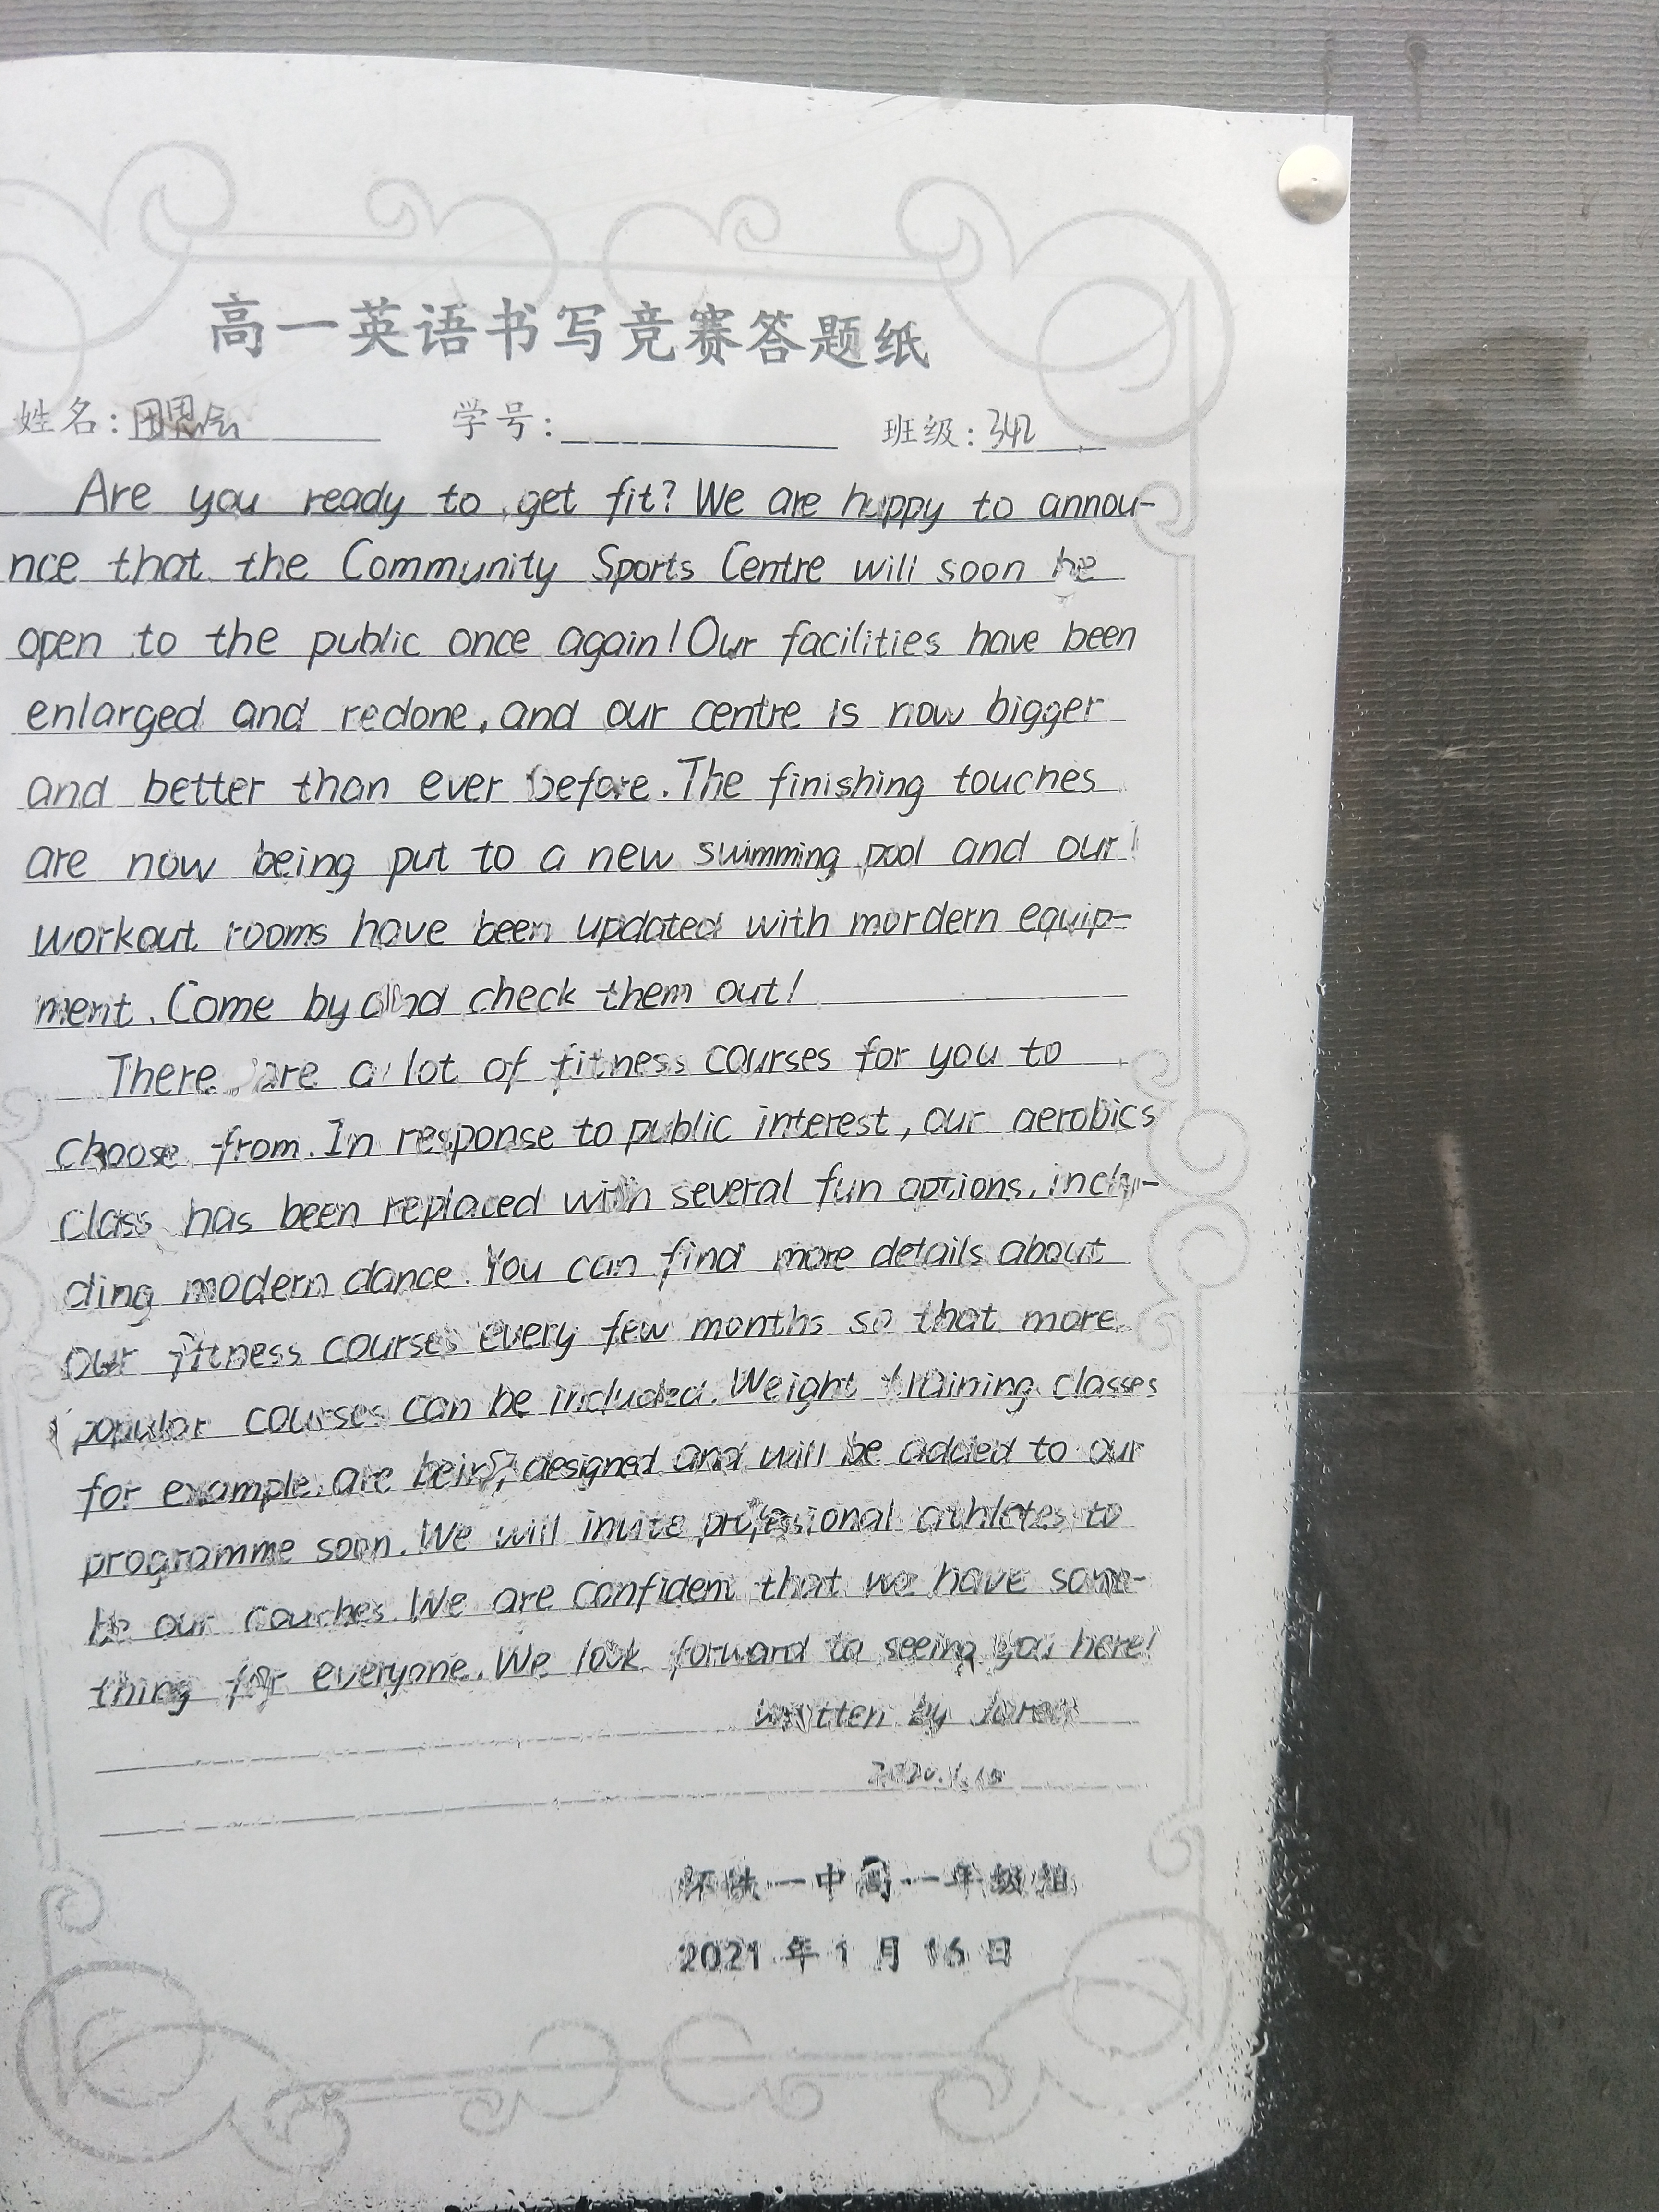 高一英语书写竞赛答题纸
姓名: 思 学号: 班级: 342
Are you ready to get fit? We are happy to annou-
nce that the Community Sports Centre will soon be
open to the public once again! Our facilities have been
enlarged and redone, and our centre is now bigger
and better than ever before. The finishing touches
are now being put to a new swimming pool and our
workout rooms have been updated with mordern equip-
ment. Come by and check them out!
There are a lot of fitness courses for you to
choose from. In response to public interest, our aerobics
class has been replaced with several fun options, inclu-
ding modern dance. You can find more details about
our fitness courses every few months so that more
popular courses can be included. Weight training classes
for example. are being designed and will be added to our
programme soon. We will invite professional athletes to
be our coaches. We are confident that we have some-
thing for everyone. We look forward to seeing you here!
written by
怀铁一中高一年级组
2021 年 1 月 16 日